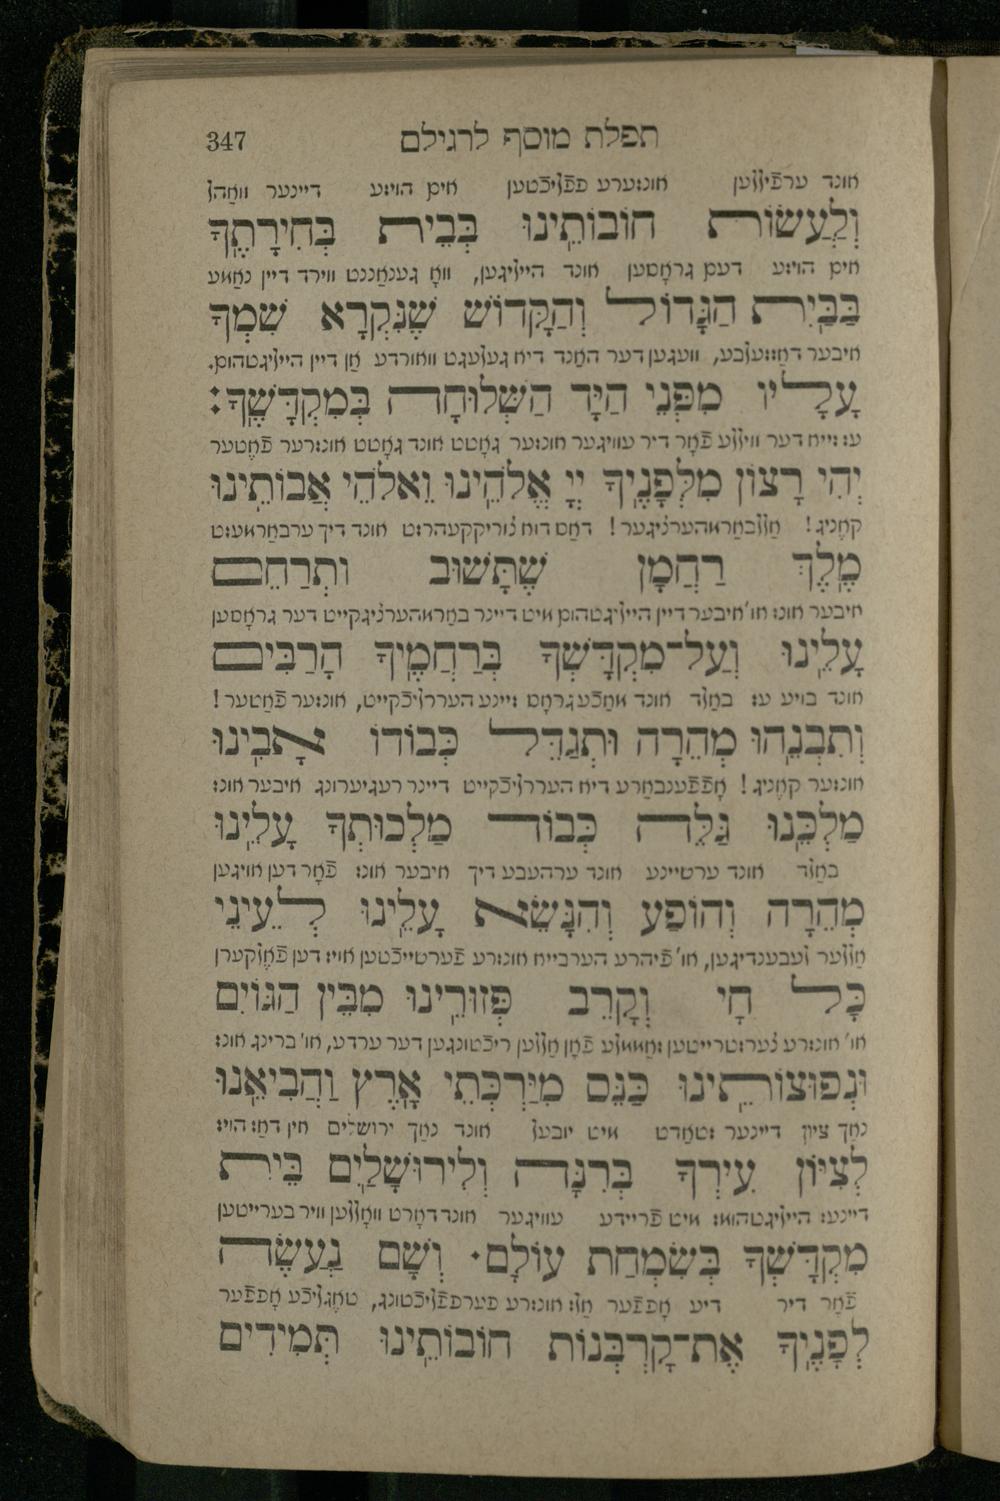 תפלת מוסף לרגילם 347
אונד ערפֿיללען אונזערע פפליכֿטען אים הויזע דיינער וואַהל
וְלַעֲשׂוֹת חוֹבוֹתֵינוּ בְּבֵית בְּחִירָתֶךָ
אים הויזע דעם גראָסען אונד הייליגען, וואָ גענאַננט ווירד דיין נאַמע
בַּבַּיִת הַגָּדוֹל וְהַקָּדוֹשׁ שֶׁנִּקְרָא שִׁמְךָ
איבער דאַססעלבע, וועגען דער האַנד דיא געלעגט וואורדע אַן דיין הייליגטהום.
עָלָיו מִפְּנֵי הַיָּד הַשְּׁלוּחָה בְּמִקְדָּשֶׁךָ:
עס זייא דער ווילע פֿאָר דיר עוויגער אונזער גאָטט אונד גאָטט אונזרער פֿאֶטער
יְהִי רָצוֹן מִלְּפָנֶיךָ יְיָ אֱלֹהֵינוּ וֵאלֹהֵי אֲבוֹתֵינוּ
קאֶניג! אַללבאַרמהערציגער! דאַס דוא צוריקקעהרסט אונד דיך ערבאַרמעסט
מֶלֶךְ רַחֲמָן שֶׁתָּשׁוּב וּתְרַחֵם
איבער אונס או' איבער דיין הייליגטהום מיט דיינר באַרמהערציגקייט דער גראָסען
עָלֵינוּ וְעַל־מִקְדָּשְׁךָ בְּרַחֲמֶיךָ הָרַבִּים
אונד בויע עס באַלד אונד מאַכֿע גראָס זיינע העררליכֿקייט, אונזער פֿאַטער!
וְתִבְנֵהוּ מְהֵרָה וּתְגַדֵּל כְּבוֹדוֹ אָבִינוּ
אונזער קאֶניג! אָפֿפֿענבאַרע דיא העררליכֿקייט דיינר רעגיערונג איבער אונס
מַלְכֵּנוּ גַּלֵּה כְּבוֹד מַלְכוּתְךָ עָלֵינוּ
באַלד אונד ערשיינע אונד ערהעבע דיך איבער אונס פֿאָר דען אויגען
מְהֵרָה וְהוֹפַע וְהִנָּשֵׂא עָלֵינוּ לְעֵינֵי
אַללער לעבענדיגען, או' פֿיהרע הערבייא אונזרע פֿערטייכֿטען אויס דען פֿאֶלקערן
כָּל חַי וְקָרֵב פְּזוּרֵינוּ מִבֵּין הַגּוֹיִם
או' אונזרע צערשטרייטען זאַממלע פֿאָן אַללען ריכֿטונגען דער ערדע, או' ברינג אונס
וּנְפוּצוֹתֵינוּ כַּנֵּס מִיַּרְכְּתֵי אָרֶץ וַהֲבִיאֵנוּ
נאַך ציון דיינער שטאַדט מיט יובעל אונד נאַך ירושלים אין דאַס הויז
לְצִיּוֹן עִירְךָ בְּרִנָּה וְלִירוּשָׁלַיִם בֵּית
דיינעס הייליגטהומס מיט פֿריידע עוויגער אונד דאָרט וואָללען וויר בערייטען
מִקְדָּשְׁךָ בְּשִׂמְחַת עוֹלָם. וְשָׁם נַעֲשֶׂה
פֿאָר דיר דיע אָפפֿער אַלס אונזרע פערפפֿליכֿטונג, טאֶגליכֿע אָפפֿער
לְפָנֶיךָ אֶת־קָרְבְּנוֹת חוֹבוֹתֵינוּ תְּמִידִים